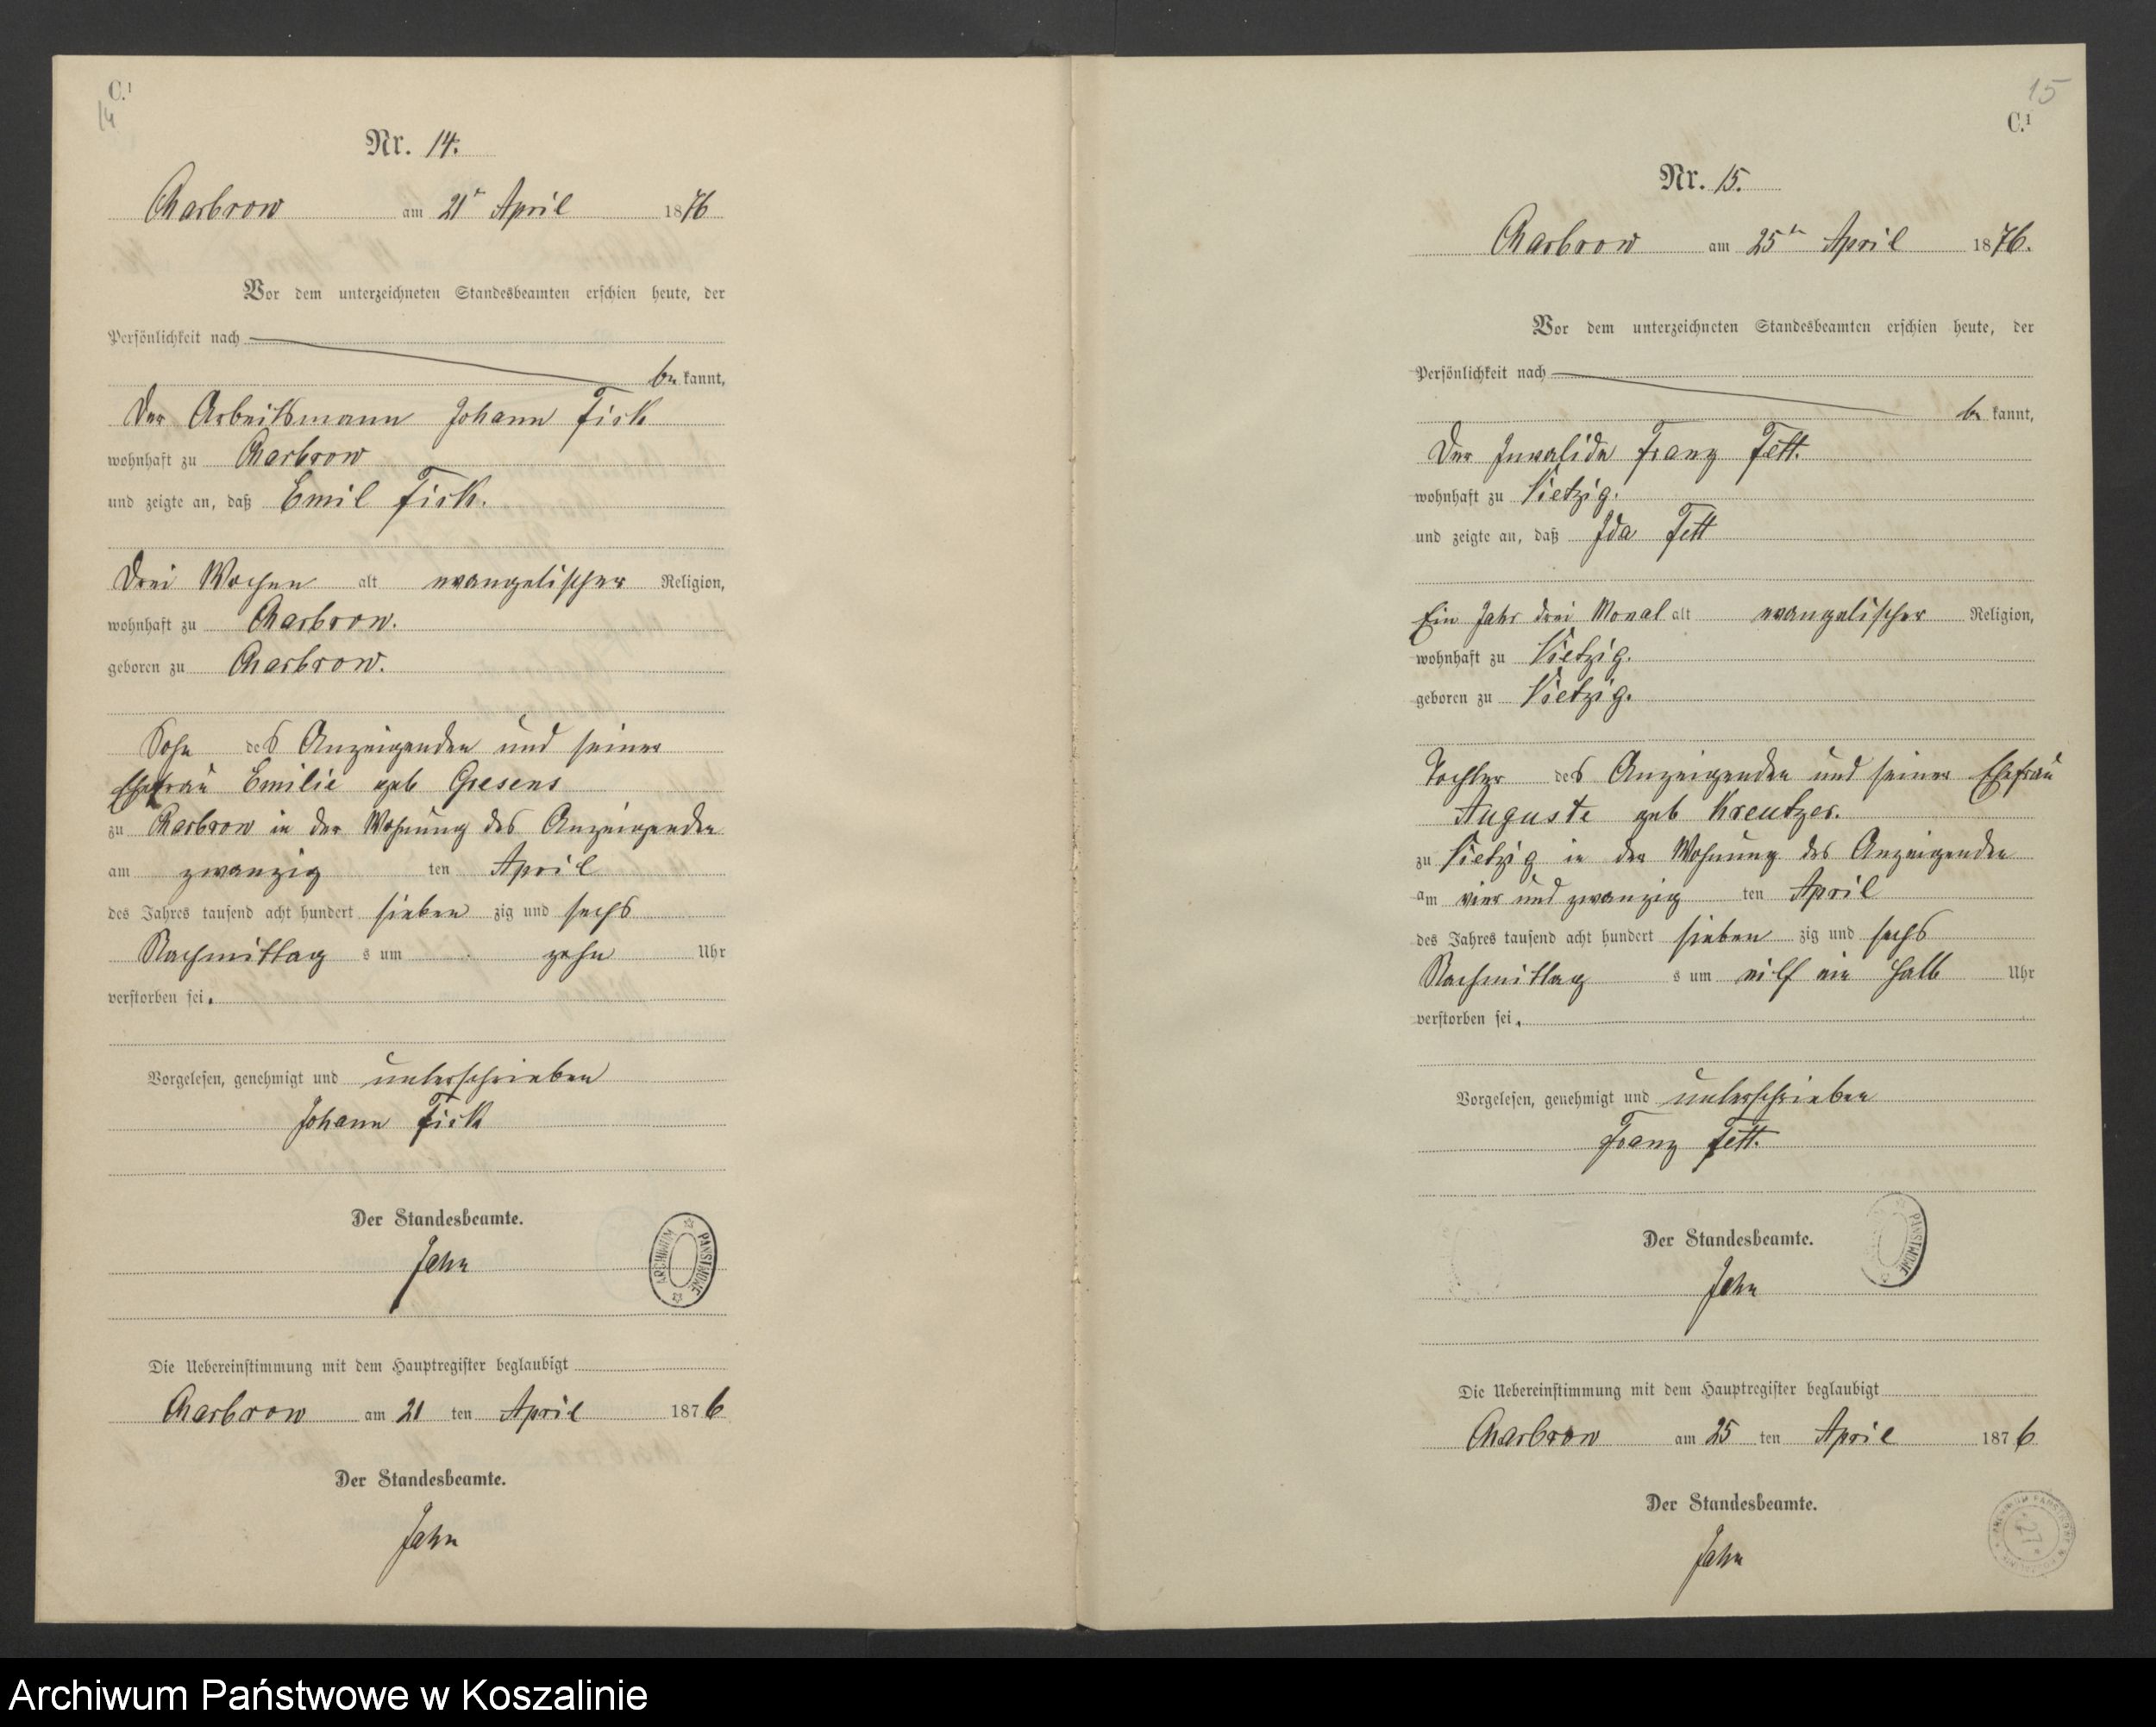 C.1
14
Nr. 14.
Charbrow am 21t April 1876
Vor dem unterzeichneten Standesbeamten erschien heute, der
Persönlichkeit nach
be kannt,
Der Arbeitsmann Johann Fick
wohnhaft zu Charbrow
und zeigte an, daß Emil Fick.
Drei Wochen alt evangelischer Religion,
wohnhaft zu Charbrow.
geboren zu Charbrow.
Sohn des Anzeigenden und seiner
Ehefrau Emilie geb Giesens
zu Charbrow in der Wohnung des Anzeigenden
am zwanzig ten April
des Jahres tausend acht hundert sieben zig und sechs
Nachmittag s um zehn Uhr
verstorben sei.
Vorgelesen, genehmigt und unterschrieben
Johann Fick
Der Standesbeamte.
Jahn
ARCHIWUM PAŃSTWOWE
Die Uebereinstimmung mit dem Hauptregister beglaubigt
Charbrow am 21 ten April 1876
Der Standesbeamte.
Jahn
15
C.1
Nr. 15.
Charbrow am 25ten April 1876.
Vor dem unterzeichneten Standesbeamten erschien heute, der
Persönlichkeit nach
be kannt,
Der Invalide Franz Fett.
wohnhaft zu Vietzig.
und zeigte an, daß Ida Fett
Ein Jahr drei Monat alt evangelischer Religion,
wohnhaft zu Vietzig.
geboren zu Vietzig.
Tochter des Anzeigenden und seiner Ehefrau
Auguste geb Kreutzer.
zu Vietzig in der Wohnung des Anzeigenden
am vier und zwanzig ten April
des Jahres tausend acht hundert sieben zig und sechs
Nachmittag s um eilf ein halb Uhr
verstorben sei.
Vorgelesen, genehmigt und unterschrieben
Franz Fett.
Der Standesbeamte.
Jahn
PAŃSTWOWE
Die Uebereinstimmung mit dem Hauptregister beglaubigt
Charbrow am 25 ten April 1876
Der Standesbeamte.
Jahn
27
Archiwum Państwowe w Koszalinie